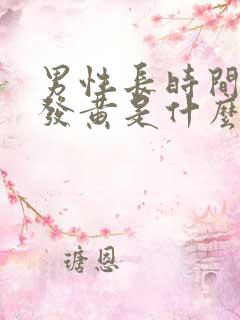 男性長時間
發黃是什麼
瑭恩